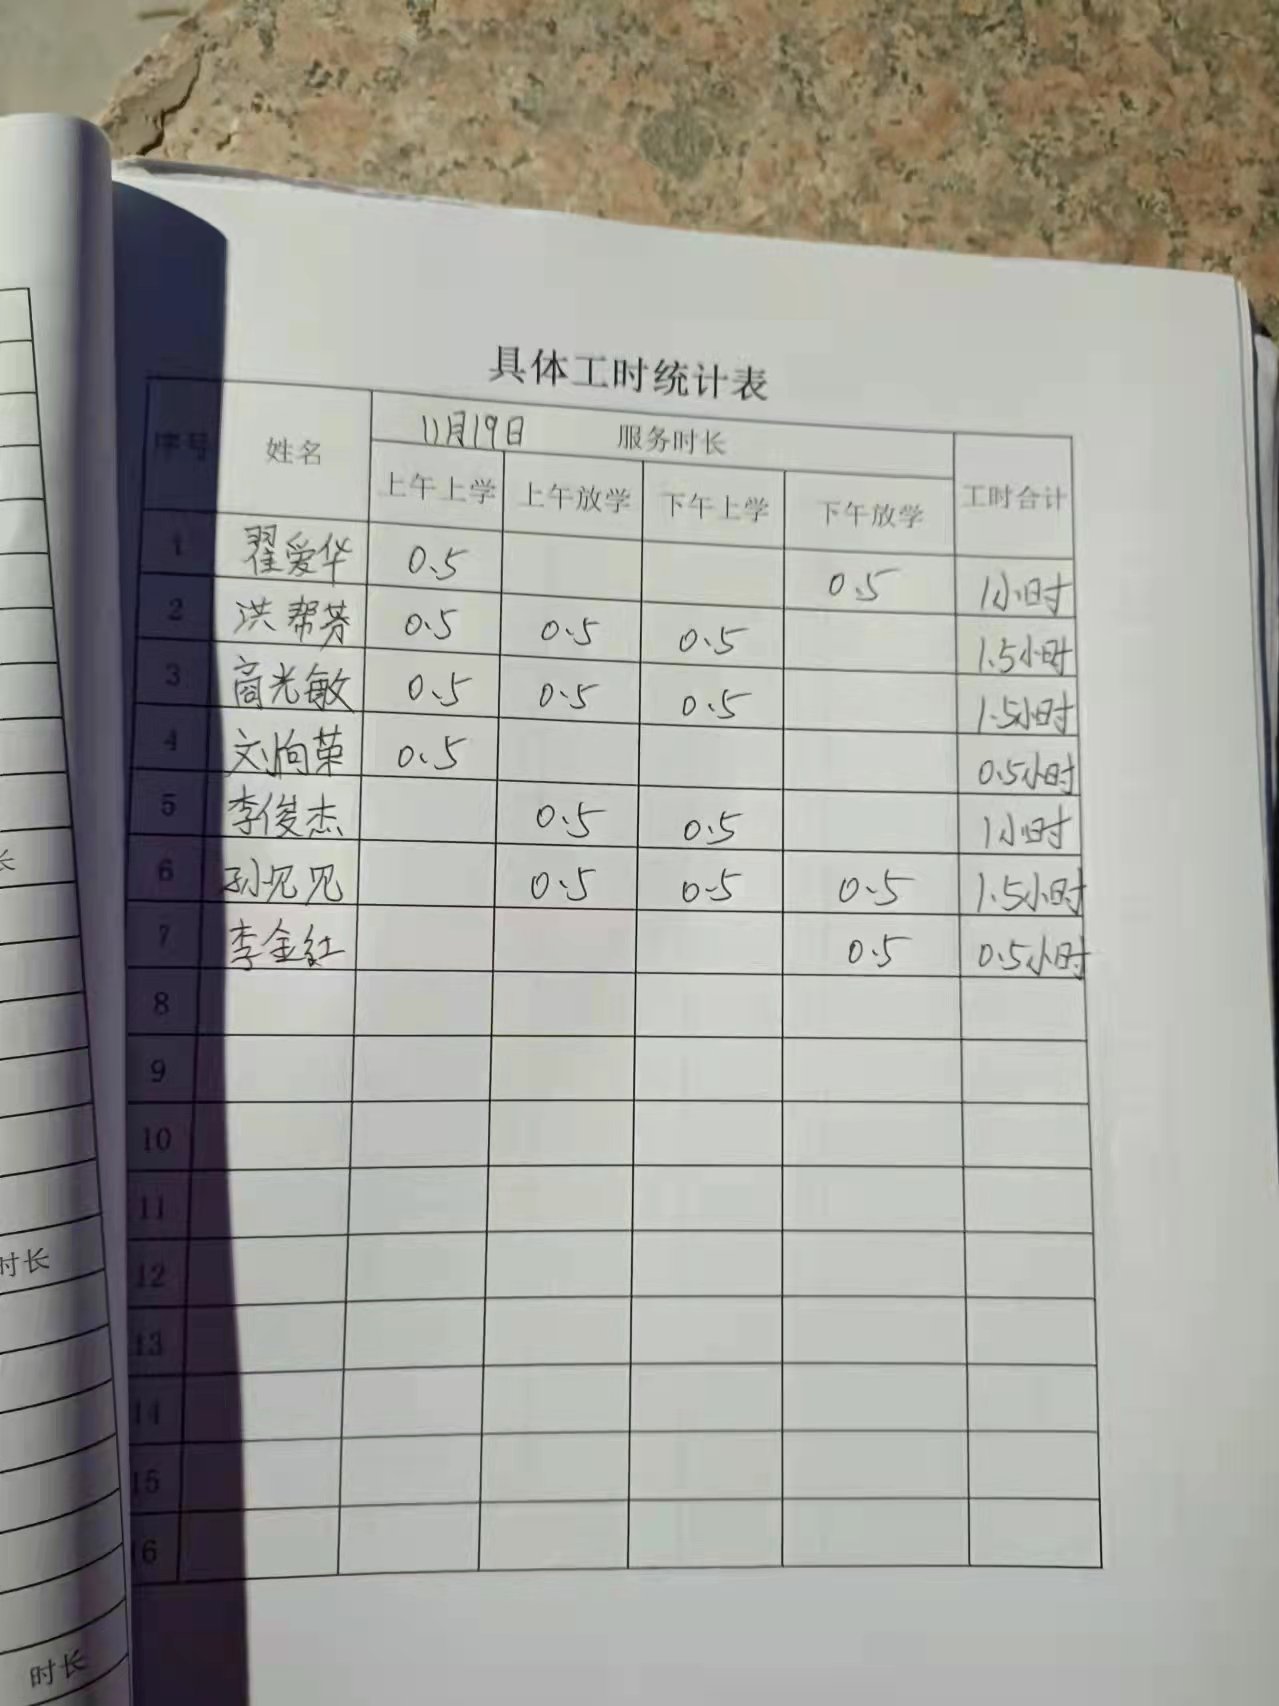 具体工时统计表
序号 姓名 11月19日 服务时长 工时合计
上午上学 上午放学 下午上学 下午放学
1 翟爱华 0.5 0.5 1小时
2 洪帮芬 0.5 0.5 0.5 1.5小时
3 商光敏 0.5 0.5 0.5 1.5小时
4 刘向荣 0.5 0.5小时
5 李俊杰 0.5 0.5 1小时
6 孙见见 0.5 0.5 0.5 1.5小时
7 李金红 0.5 0.5小时
8
9
10
11
12
13
14
15
16
长
时长
时长